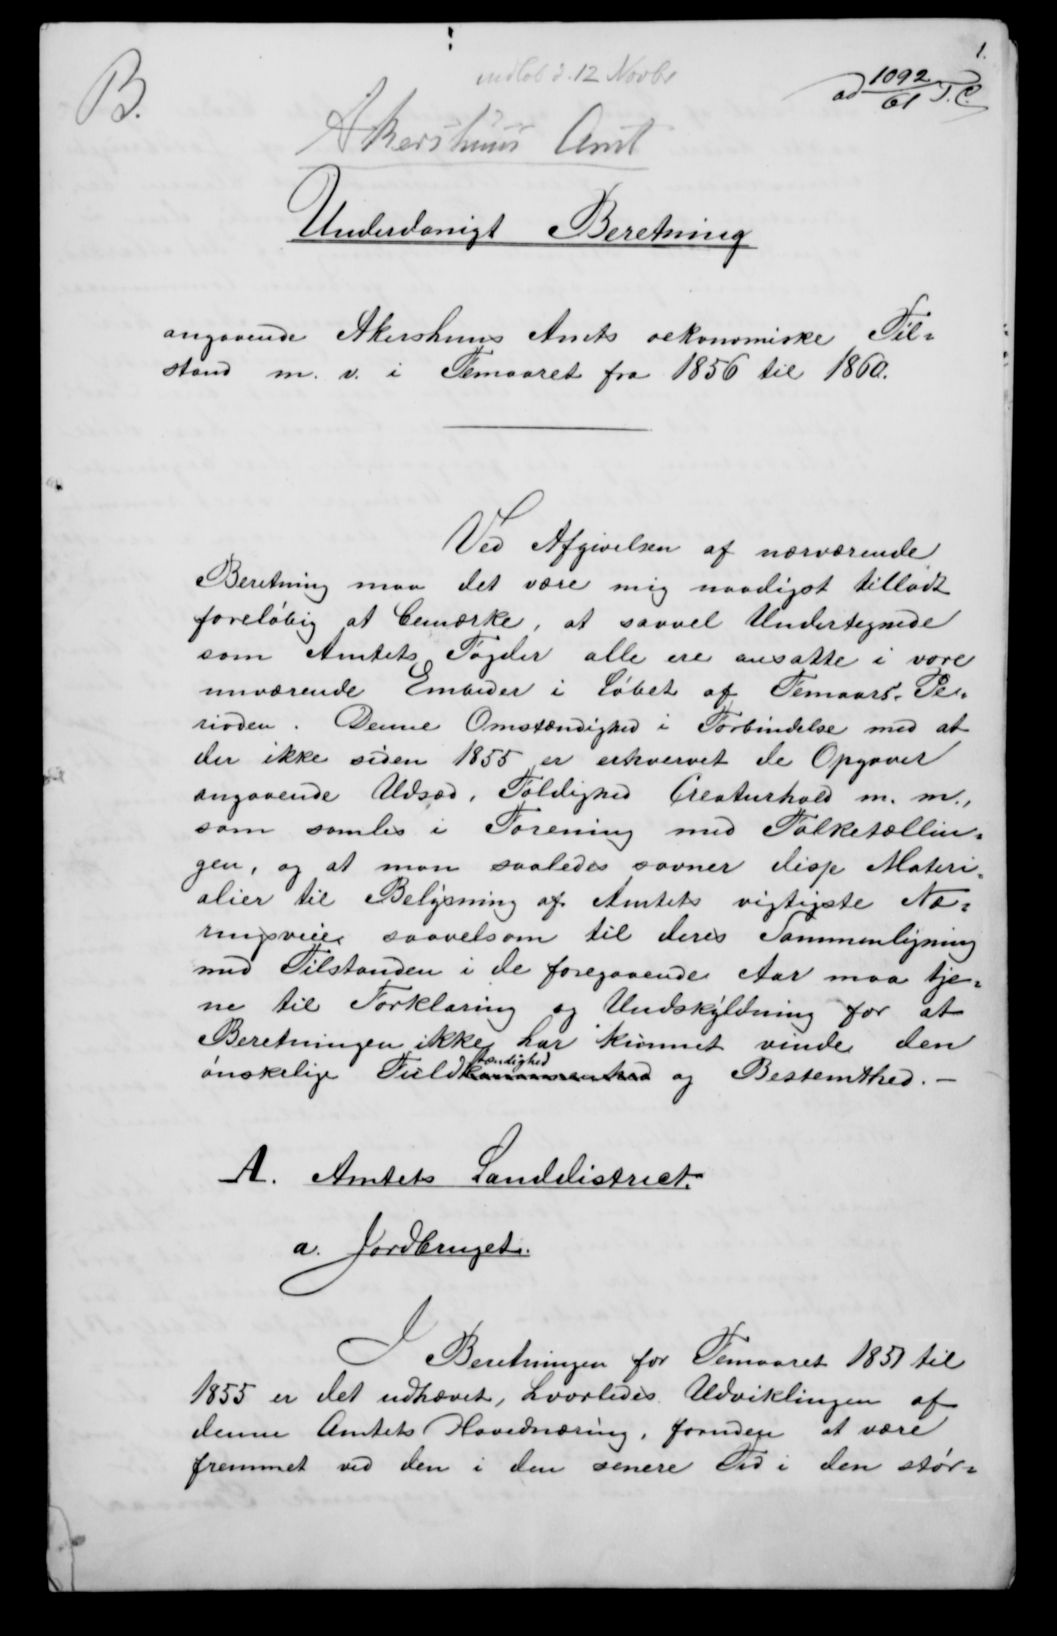 1.
B.
indkob d. 12 Novbr
ad 1092/61 T. C.
Akershuus Amt
Underdanigt Beretning
angaaende Akershuus Amts oekonomiske Til=
stand m. v. i Femaaret fra 1856 til 1860.
Ved Afgivelsen af nærværende
Beretning maa det være mig naadigst tilladt
foreløbig at bemærke, at saavel Undertegnede
som Amtets Fogder alle ere ansatte i vore
nuværende Embeder i Løbet af Femaars-Pe=
rioden. Denne Omstændighed i Forbindelse med at
der ikke siden 1855 er erhvervet de Opgaver
angaaende Udsæd, Foldighed Creaturhold m. m.,
som samles i Forening med Folketællin=
gen, og at man saaledes savner disse Materi=
alier til Belysning af Amtets vigtigste Næ=
ringsveie saavelsom til deres Sammenligning
med Tilstanden i de foregaaende Aar maa tje=
ne til Forklaring og Undskyldning for at
Beretningen ikke har kunnet vinde den
ønskelige Fuldstændighed og Bestemthed. —
A. Amtets Landdistrict.
a. Jordbruget.
I Beretningen for Femaaret 1851 til
1855 er det udhævet, hvorledes Udviklingen af
denne Amtets Hovednæring, foruden at være
fremmet ved den i den senere Tid i den stør=